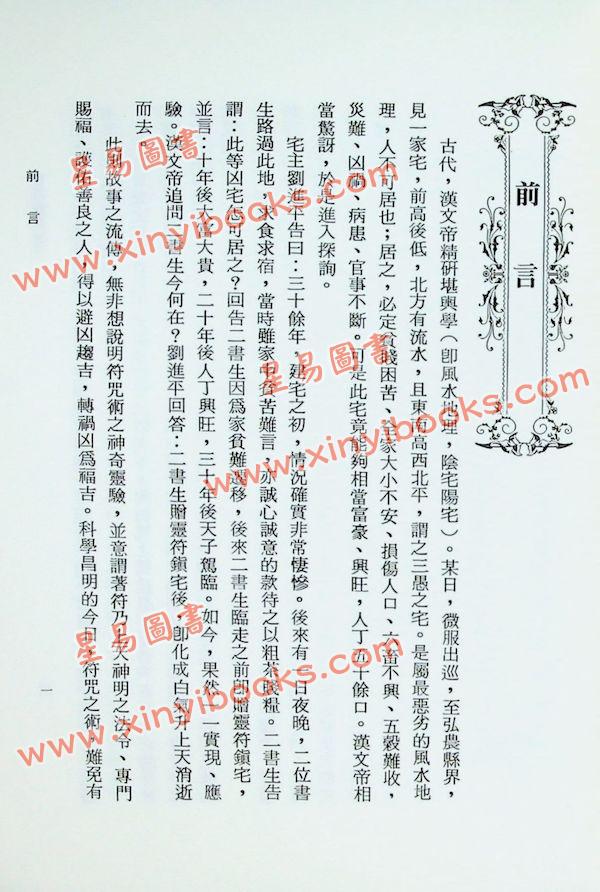 前言
古代，漢文帝精研堪輿學（即風水地理，陰宅陽宅）。某日，微服出巡，至弘農縣界，
見一家宅，前高後低，北方有流水，且東南高西北平，謂之三愚之宅。是屬最惡劣的風水地
理，人不可居也；居之，必定貧賤困苦、全家大小不安、損傷人口、六畜不興、五穀難收，
災難、凶禍、病患、官事不斷。可是此宅竟能夠相當富豪、興旺，人丁五十餘口。漢文帝相
當驚訝，於是進入探詢。
宅主劉進平告曰：三十餘年，建宅之初，情況確實非常悽慘。後來有一日夜晚，二位書
生路過此地，求食求宿，當時雖家中貧苦難言，亦誠心誠意的款待之以粗茶賤糧。二書生告
謂：此等凶宅怎可居之？回告二書生因為家貧難遷移，後來二書生臨走之前即贈靈符鎮宅，
並言：十年後大富大貴，二十年後人丁興旺，三十年後天子駕臨。如今，果然一一實現、應
驗。漢文帝追問二書生今何在？劉進平回答：二書生贈靈符鎮宅後，即化成白氣升上天消逝
而去。
此則故事之流傳，無非想說明符咒術之神奇靈驗，並意謂著符乃上天神明之法令、專門
賜福、護佑善良之人，得以避凶趨吉，轉禍凶為福吉。科學昌明的今日，符咒之術，難免有
前言
一
星易圖書
www.xinyibooks.com
星易圖書
www.xinyibooks.com
星易圖書
www.xinyibooks.com